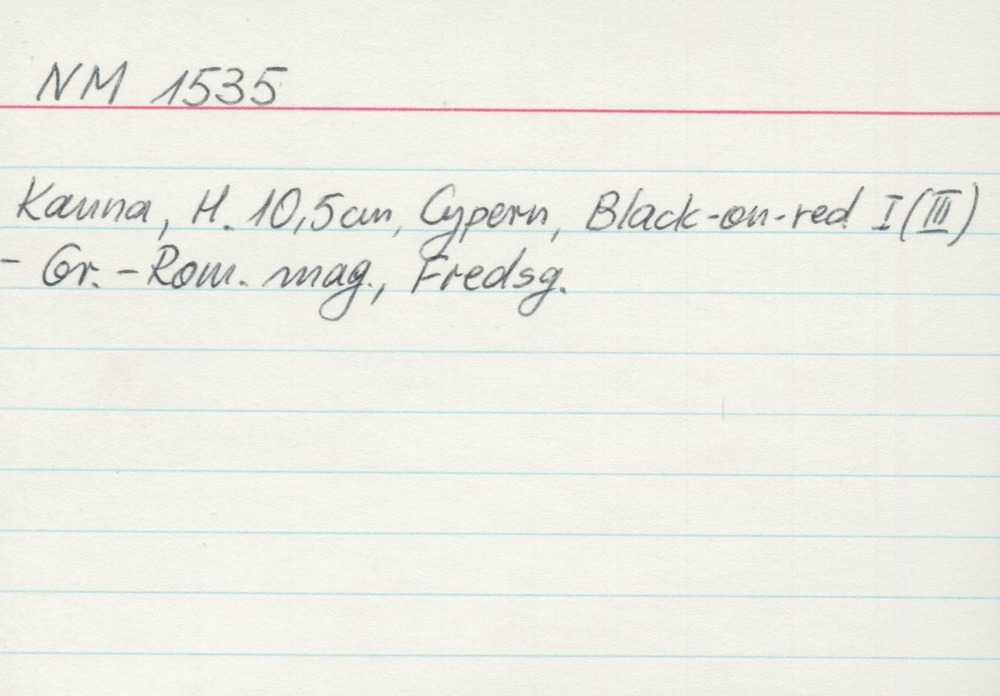 NM 1535
Kanna, H. 10,5cm, Cypern, Black-on-red I(III)
- Gr.-Rom. mag., Fredsg.